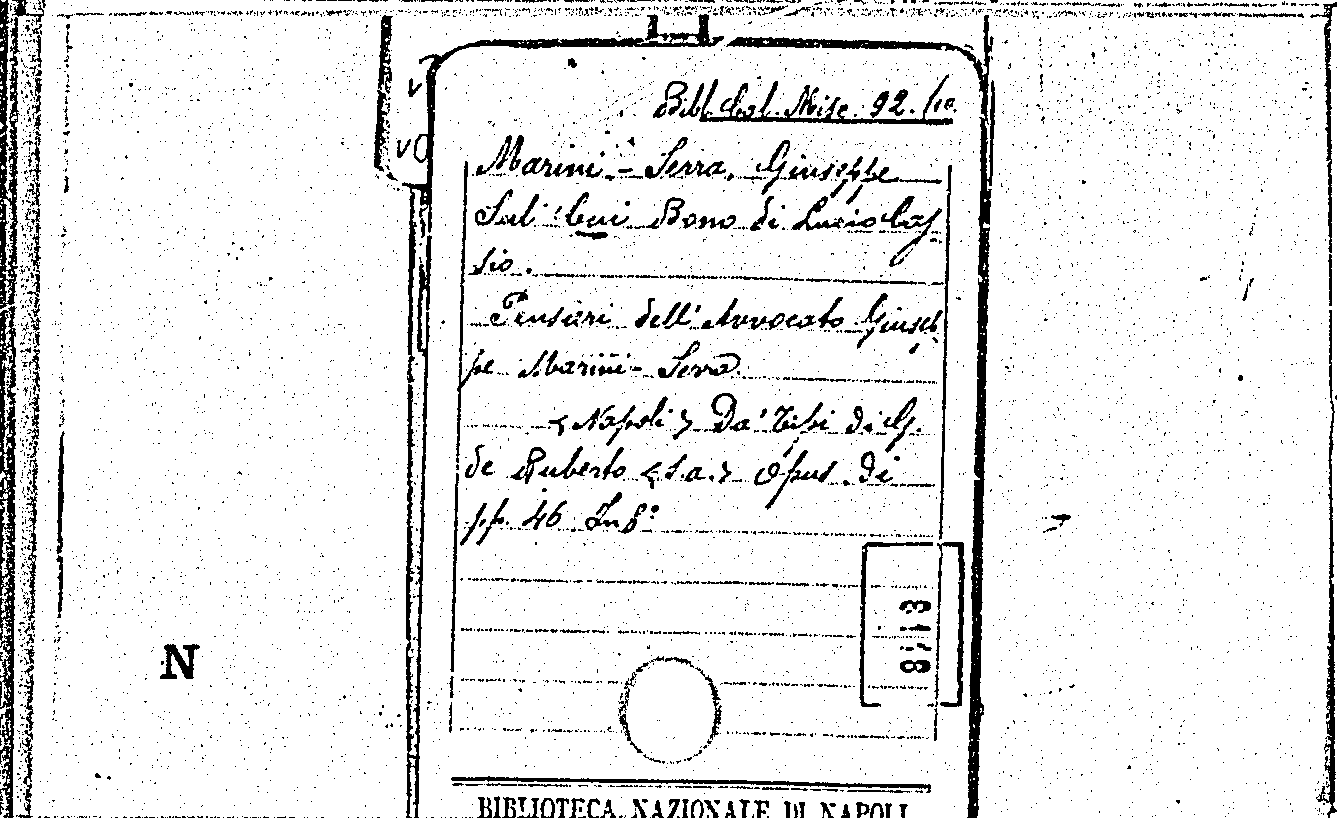 Bibl. Cal. Misc. 92./10.
Marini - Serra, Giuseppe
Sul: Cui Bono di Lucio Cas-
sio.
Pensieri dell' Avvocato Giusep-
pe Marini - Serra.
<Napoli> Da' Tipi di G.
de Ruberto <s.a.> Opus. di
pp. 46 In 8°
N
BIBLIOTECA NAZIONALE DI NAPOLI